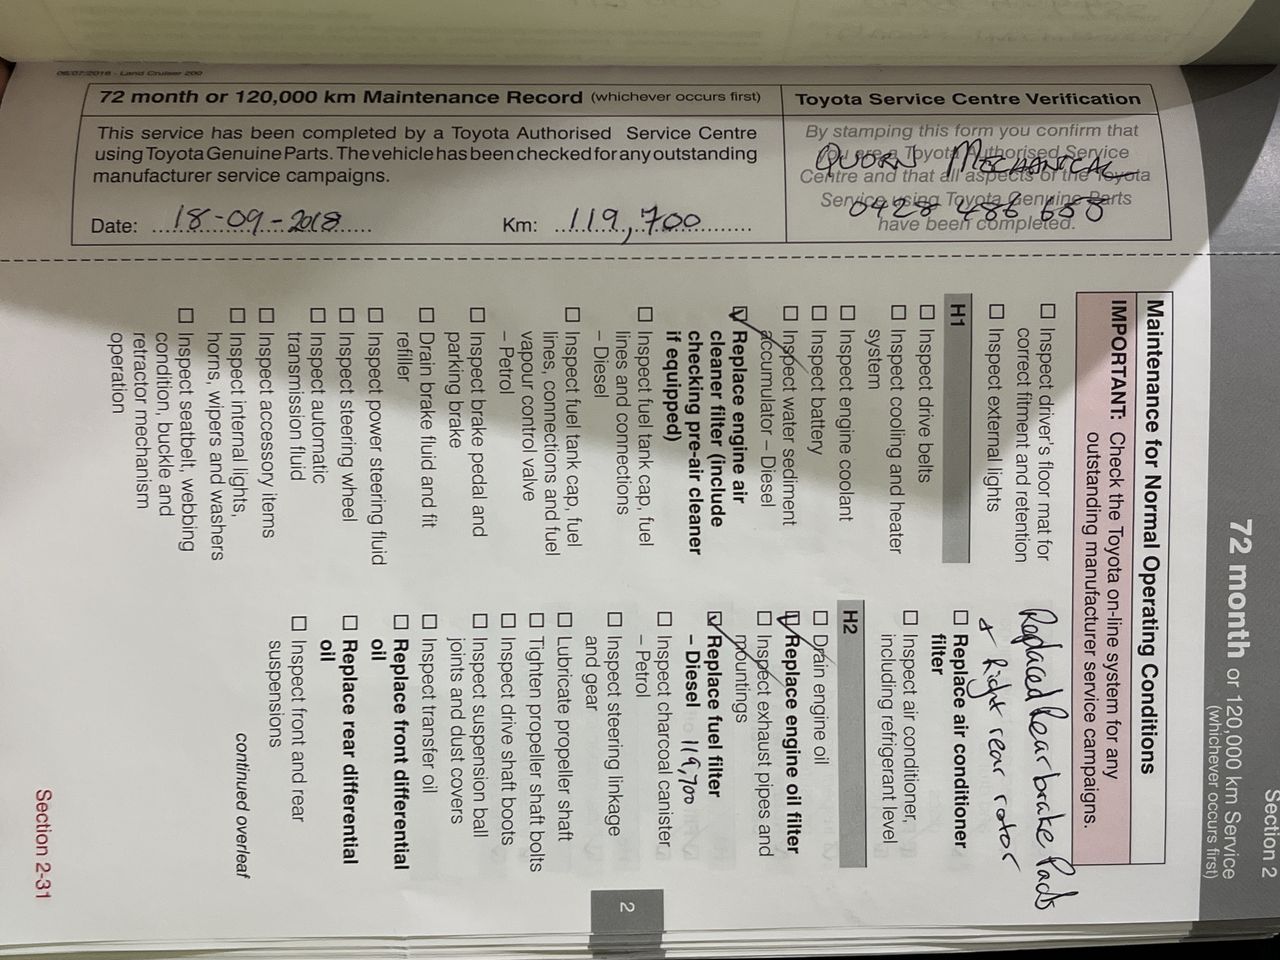 06/07/2016 - Land Cruiser 200
72 month or 120,000 km Maintenance Record (whichever occurs first)
This service has been completed by a Toyota Authorised Service Centre
using Toyota Genuine Parts. The vehicle has been checked for any outstanding
manufacturer service campaigns.
Date: 18-09-2018
Km: 119,700
Toyota Service Centre Verification
By stamping this form you confirm that
you are a Toyota Authorised Service
Centre and that all aspects of the Toyota
Service using Toyota Genuine Parts
have been completed.
QUORN MECHANICAL
0428 486 655
Section 2
72 month or 120,000 km Service
(whichever occurs first)
Maintenance for Normal Operating Conditions
IMPORTANT: Check the Toyota on-line system for any
outstanding manufacturer service campaigns.
Inspect driver's floor mat for
correct fitment and retention
Inspect external lights
H1
Inspect drive belts
Inspect cooling and heater
system
Inspect engine coolant
Inspect battery
Inspect water sediment
accumulator – Diesel
Replace engine air
cleaner filter (include
checking pre-air cleaner
if equipped)
Inspect fuel tank cap, fuel
lines and connections
– Diesel
Inspect fuel tank cap, fuel
lines, connections and fuel
vapour control valve
– Petrol
Inspect brake pedal and
parking brake
Drain brake fluid and fit
refiller
Inspect power steering fluid
Inspect steering wheel
Inspect automatic
transmission fluid
Inspect accessory items
Inspect internal lights,
horns, wipers and washers
Inspect seatbelt, webbing
condition, buckle and
retractor mechanism
operation
Replaced Rear brake Pads
+ Right rear rotor
Replace air conditioner
filter
Inspect air conditioner,
including refrigerant level
H2
Drain engine oil
Replace engine oil filter
Inspect exhaust pipes and
mountings
Replace fuel filter
– Diesel 119,700
Inspect charcoal canister
– Petrol
Inspect steering linkage
and gear
Lubricate propeller shaft
Tighten propeller shaft bolts
Inspect drive shaft boots
Inspect suspension ball
joints and dust covers
Inspect transfer oil
Replace front differential
oil
Replace rear differential
oil
Inspect front and rear
suspensions
continued overleaf
2
Section 2-31